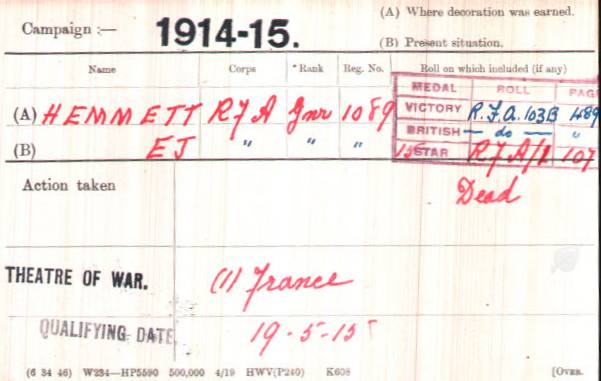 (A) Where decoration was earned.
Campaign :— 1914-15.
(B) Present situation.
Name Corps *Rank Reg. No. Roll on which included (if any)
MEDAL ROLL PAGE
(A) HEMMETT RFA Gnr 1089 VICTORY R.F.A. 103B 489
BRITISH — do — "
(B) EJ " " " 15 STAR RFA/2 107
Action taken Dead
THEATRE OF WAR. (1) France
QUALIFYING DATE 19-5-15
(6 34 46) W234—HP5590 500,000 4/19 HWV(P240) K608 [OVER.